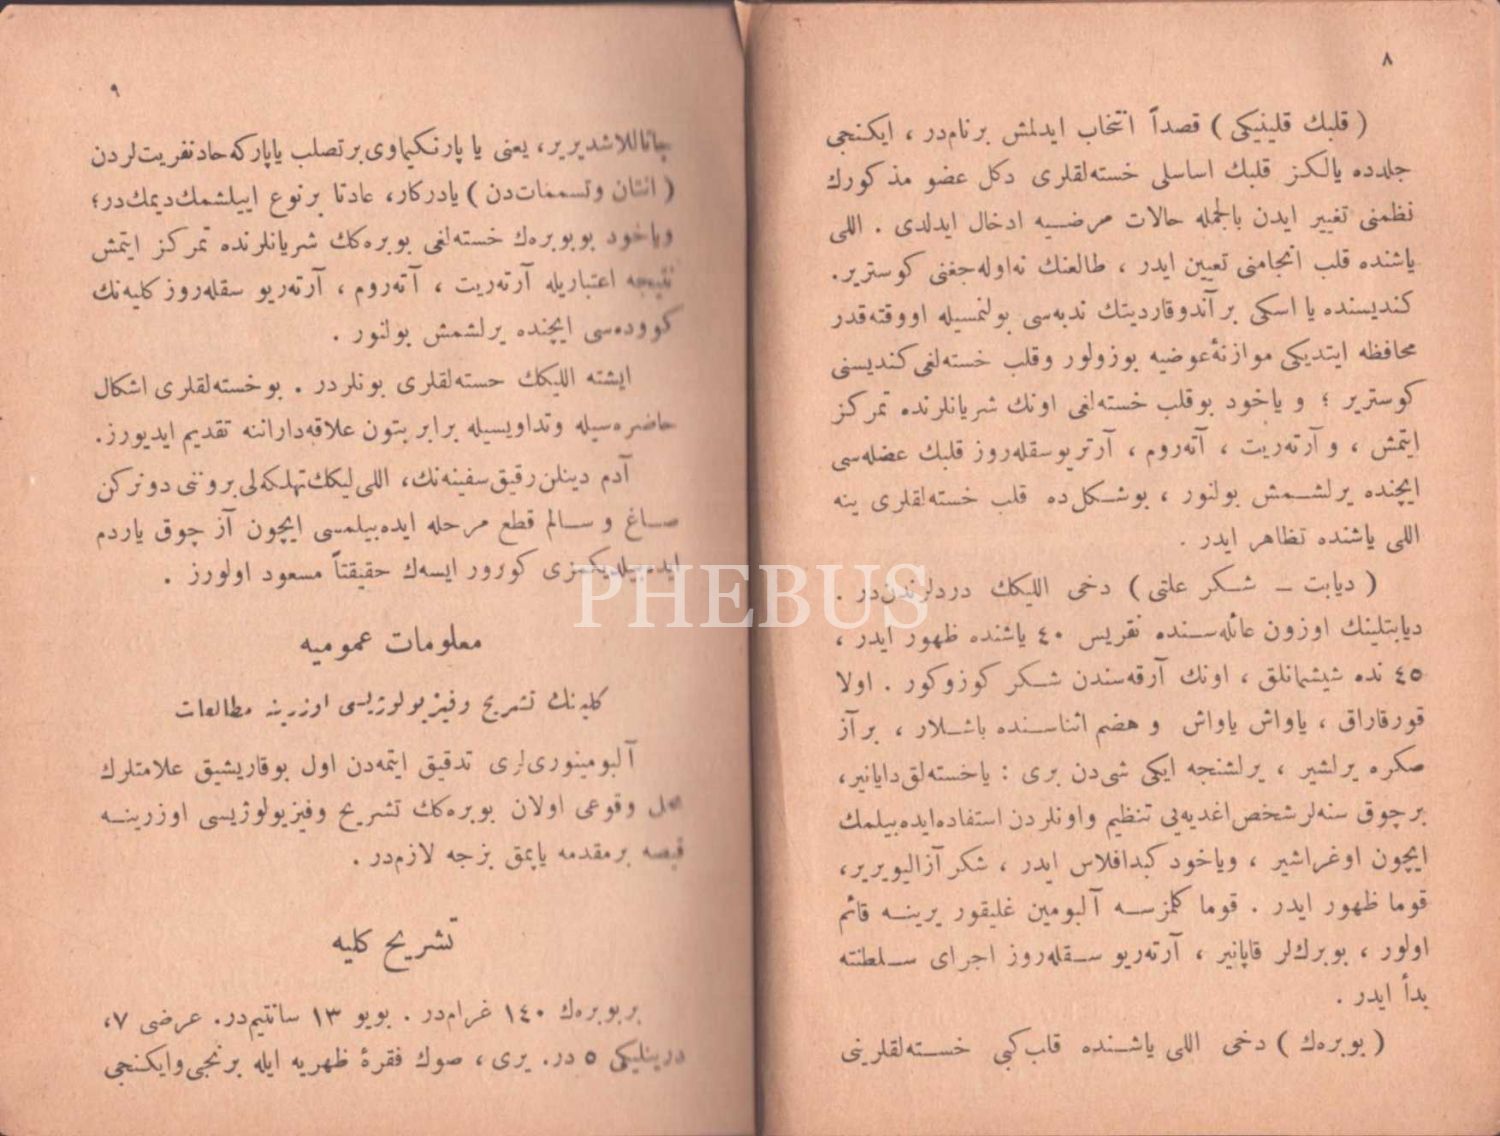 ٨
( قلبك قلينيكى ) قصداً انتخاب ايدلمش برنامدر ، ايكنجى
جلدده يالكز قلبك اساسلى خسته‌لقلرى دكل عضو مذكورك
نظمنى تغيير ايدن بالجمله حالات مرضيه ادخال ايدلدى . اللى
ياشنده قلب انجامنى تعيين ايدر ، طالعنك نه‌اوله‌جغنى كوسترير.
كنديسنده يا اسكى بر آندوقارديتك ندبه‌سى بولنمسيله اووقته‌قدر
محافظه ايتديكى موازنهٔ‌عوضيه بوزولور وقلب خسته‌لغى كنديسنى
كوسترير ؛ و ياخود بوقلب خسته‌لغى اونك شريانلرنده تمركز
ايتمش ، و آرته‌ريت ، آته‌روم ، آرتريوسقله‌روز قلبك عضله‌سى
ايچنده يرلشمش بولنور ، بوشكل‌ده قلب خسته‌لقلرى ينه
اللى ياشنده تظاهر ايدر .
( ديابت ـ شكر علتى ) دخى الليلك دردلرندن‌در .
ديابتلينك اوزون عائله‌سنده نقريس ٤٠ ياشنده ظهور ايدر ،
٤٥ نده شيشمانلق ، اونك آرقه‌سندن شكر كوزوكور . اولا
قورقاراق ، ياواش ياواش و هضم اثناسنده باشلار ، بر آز
صكره يرلشير ، يرلشنجه ايكى شى‌دن برى : ياخسته‌لق‌دايانير،
برچوق سنه‌لرشخص‌اغديه‌يى تنظيم و اونلردن استفاده‌ايده‌بيلمك
ايچون اوغراشير ، وياخود كبدافلاس ايدر ، شكر آزاليويرير،
قوما ظهور ايدر . قوما كلمزسه آلبومين غليقور يرينه قائم
اولور ، بوبرك‌لر قاپانير ، آرته‌ريو سقله‌روز اجراى سلطنته
بدأ ايدر .
( بوبره‌ك ) دخى اللى ياشنده قلب‌كبى خسته‌لقلرينى
٩
چاتاللاشديرير، يعنى يا پارنكيماوى‌بر تصلب ياپاركه‌حادنفريت‌لردن
( انتان وتسممات‌دن ) يادركار، عادتا برنوع ايييلشمك‌ديمك‌در؛
وياخود بوبوبره‌ك خسته‌لغى بوبره‌كك شريانلرنده تمركز ايتمش
نتيجه اعتباريله آرته‌ريت ، آته‌روم ، آرته‌ريو سقله‌روز كليه‌نك
كووده‌سى ايچنده يرلشمش بولنور .
ايشته الليلك خسته‌لقلرى بونلردر . بوخسته‌لقلرى اشكال
حاضره‌سيله وتداويسيله برابر بتون علاقه‌داراننه تقديم ايديورز.
آدم دينلن رقيق سفينه‌نك، اللى‌ليكك تهلكه‌لى‌بروننى دونركن
صاغ و سالم قطع مرحله ايده‌بيلمسى ايچون آز چوق ياردم
ايده‌بيلديكمزى كورور ايسه‌ك حقيقتاً مسعود اولورز .
معلومات عموميه
كليه‌نك تشريح وفيزيولوژيسى اوزرينه مطالعات
آلبومينورى‌لرى تدقيق ايتمه‌دن اول بوقاريشيق علامتلرك
محل وقوعى اولان بوبره‌كك تشريح وفيزيولوژيسى اوزرينه
قيصه برمقدمه ياپمق بزجه لازم‌در .
تشريح كليه
بربوبره‌ك ١٤٠ غرام‌در . بويو ١٣ سانتيم‌در. عرضى ٧،
درينليكى ٥ در. يرى، صوك فقرهٔ ظهريه ايله برنجى‌وايكنجى
PHEBUS